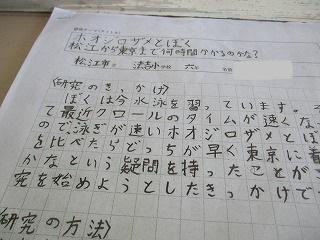 ホオジロザメとぼく
松江から東京まで何時間かかるのかな?
松江市立 法吉小学校 六年 名前
〈研究のきっかけ〉
ぼくは今水泳を習っています。そ
て最近クロールのタイムが速くな
ので泳ぎが速いホオジロザメとぼ
を比べたらどっちが早く東京に着
かなという疑問を持ったことがこ
究を始めようとしたきっかけで
〈研究の方法〉